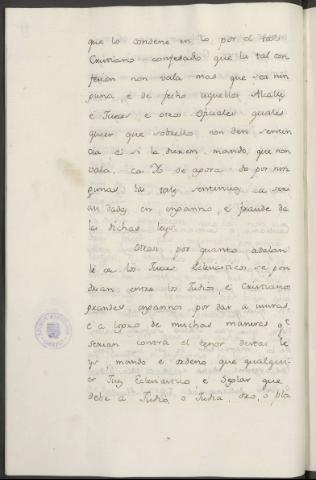 que lo condene en Yo, por el tal
Cristiano confesado que la tal con
fesion non vala mas que sea nin
guna, é de fecho aquellos Alcalls
é Jueces é otros Oficiales quales
quier que sobrello non den senten
cia é si la dieren, mando, que non
vala, ca Yo de agora do por nin
gunas las tales sentencias ca seri
an dadas en engaño, é fraude de
las dichas leys.
Otrosi por quanto adelan
te de los Jueces Eclesiasticos se pon
drian entre los Judios, é Cristianos
grandes engaños por dar a usuras,
e a logro de muchas maneras qe
serian contra el tenor destas le
ys, mando é ordeno que qualqui
er Juez Eclesiastico, é Seglar que
debe a Judio, o Judia, oro, o pla